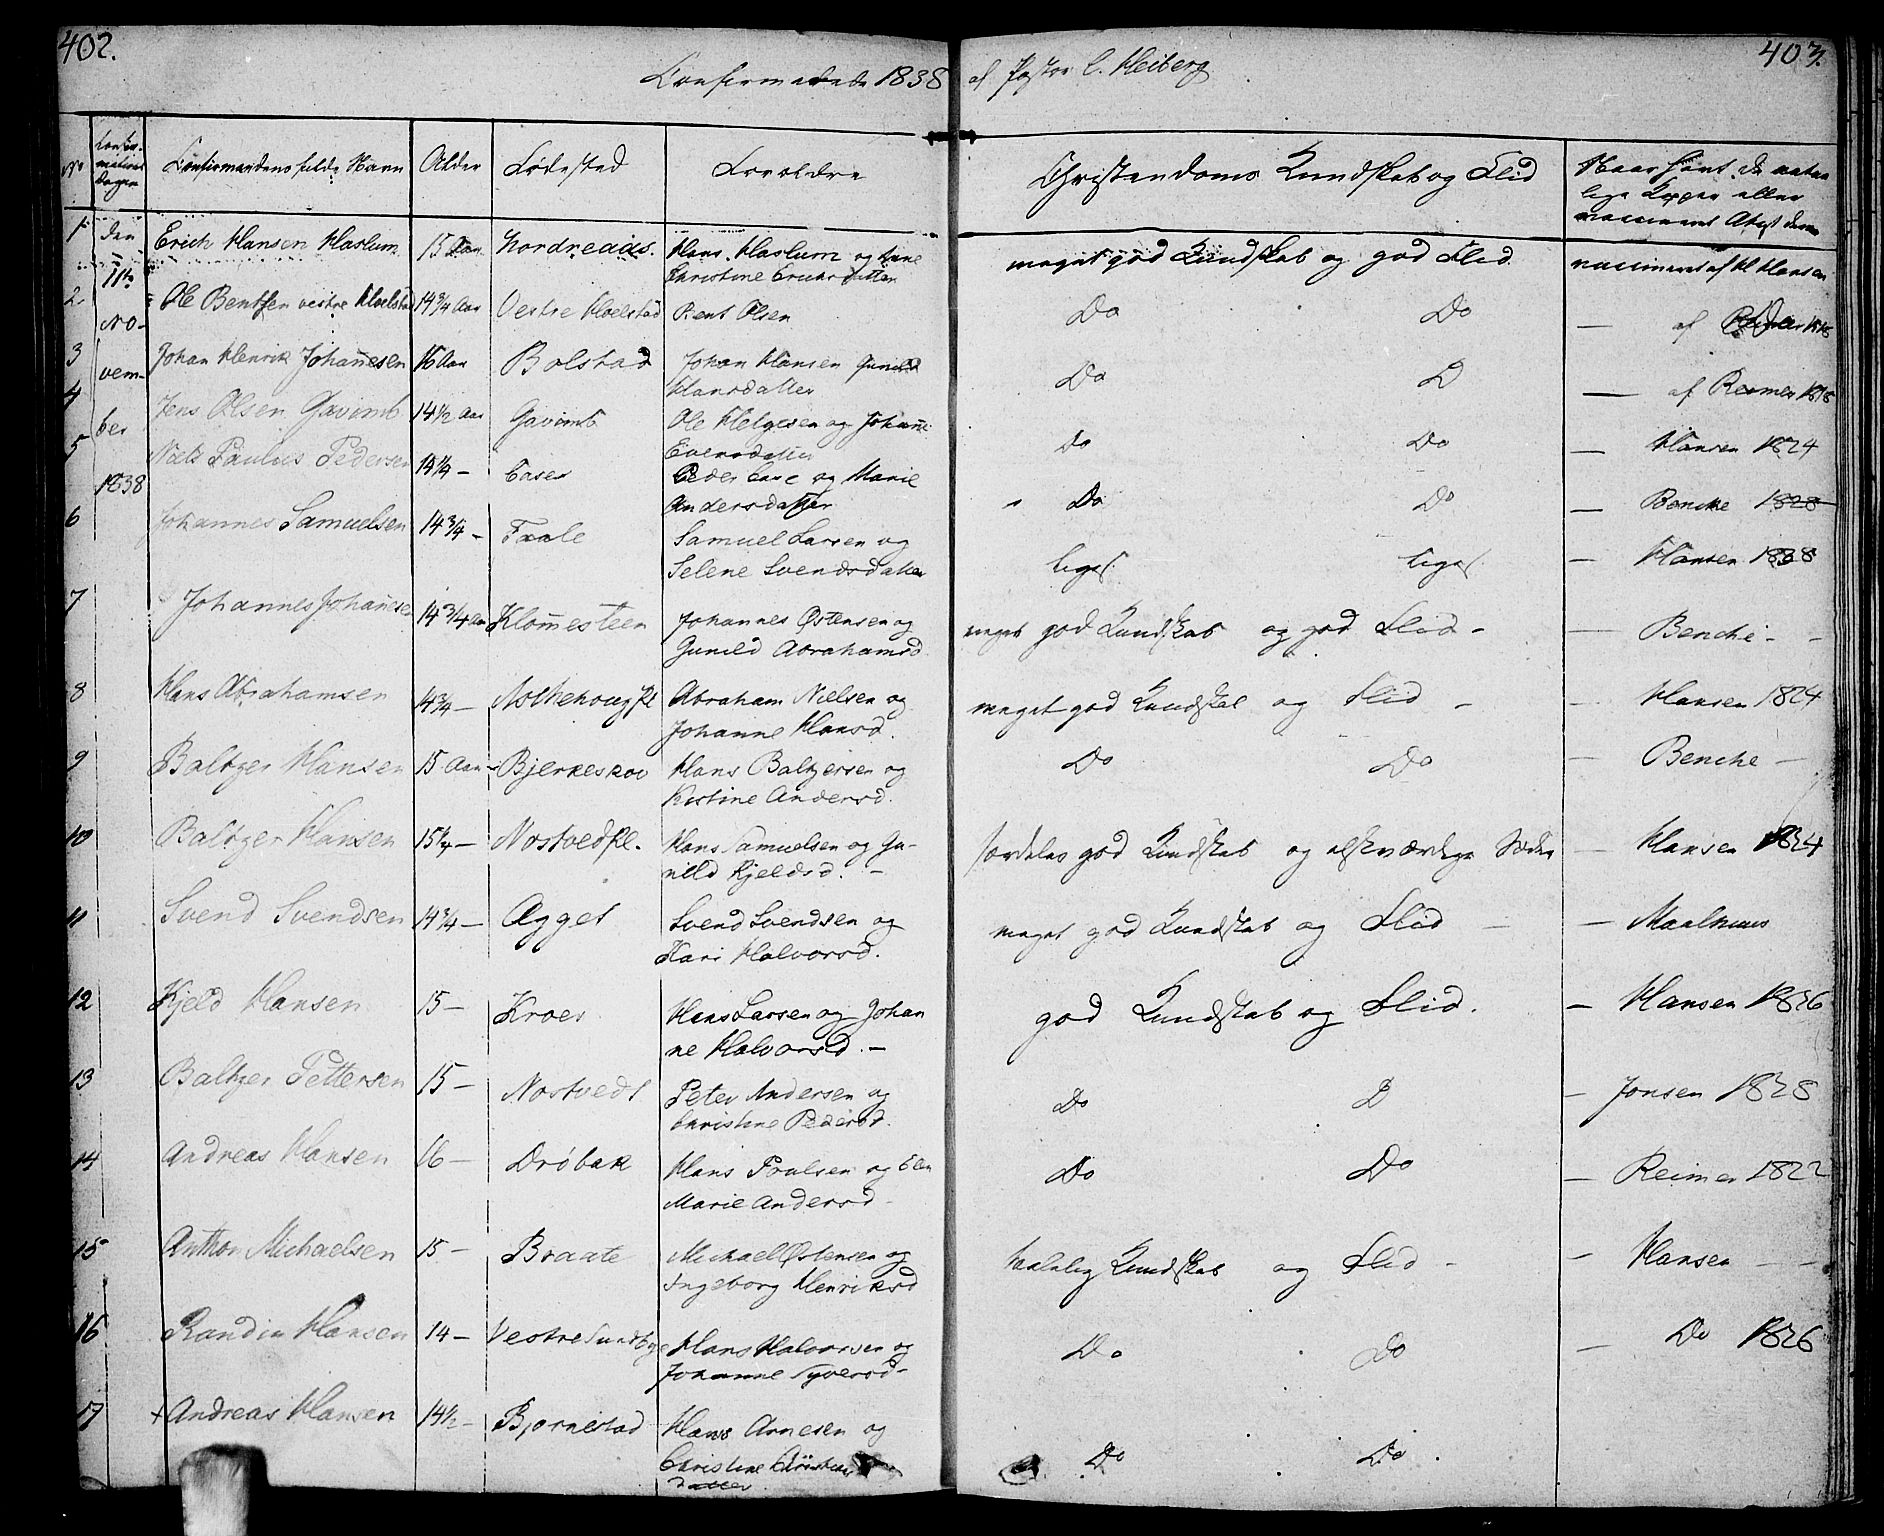 402.
403.
Confirmerede 1838 af Pastor C. Heiberg
No
Confir-
mations
Dagen
Confirmandens fulde Navn
Alder
Fødested
Forældre
Christendoms Kundskab og Flid
Naar havt de natur
lige Kopper eller
vaccineret Attest derom
den
11te
No-
vem-
ber
1838
1 Erich Hansen Haslum 15 Aar Nordreaas. Hans Haslum og Ane meget god Kundskab og god Flid. vaccineret af H Hansen
Christine Erichsdatter
2 Ole Bentsen vestre Hoelstad 14 3/4 Aar Vestre Hoelstad Bent Olsen Do Do — af Reimer
3 Johan Henrik Johañesen 16 Aar Bolstad Johan Hansen Gunild Do D — af Reimer
Hansdatter
4 Jens Olsen Gavimb 14 1/2 Aar Gavimb Ole Helgesen og Johañe Do Do — Hansen 1824
Evensdatter
5 Niels Paulus Pedersen 14 1/4 — Caser Peder Case og Marie Do Do — Benche 1828
Andersdatter
6 Johannes Samuelsen 14 3/4 — Faale Samuel Larsen og liges. liges. — Hansen 1838
Selene Svendsdatter
7 Johannes Johañesen 14 3/4 Aar Klom̃esteen Johannes Østensen og meget god Kundskab og god Flid — — Benche — —
Gunild Abrahamsd
8 Hans Abrahamsen 14 3/4 — Abraham Nielsen og meget god Kundskab og Flid — — Hansen 1824
Johanne Hansd.
9 Baltzer Hansen 15 Aar — Bjerkeskov Hans Baltzersen og Do Do — Benche —
Kistine Andersd.
10 Baltzer Hansen 15 1/4 — Nostvedpl. Hans Samuelsen og Gu- særdeles god Kundskab og elskværdige Sæder — Hansen 1824
nild Kjeldsd. —
11 Svend Svendsen 14 3/4 — Agget Svend Svendsen og meget god Kundskab og Flid — — Maalhuus
Kari Halvorsd.
12 Kjeld Hansen 15 — Kroer Hans Larsen og Johan god Kundskab og Flid. — Hansen 1826
ne Halvorsd. —
13 Baltzer Pettersen 15 — Nostvedt Peter Andersen og Do D — Jonsen 1828
Christine Pedersd.
14 Andreas Hansen 16 — Drøbak Hans Poulsen og Elen Do Do — Reimer 1822
Marie Andersd —
15 Anthon Michaelsen 15 — Braate Michael Østensen og taalelig Kundskab og Flid — — Hansen — —
Ingeborg Henriksd
16 Randin Hansen 14 — Vestre Sundbye Hans Halvorsen og Do Do — Do 1826
Johanne Syversd —
17 + Andreas Hansen 14 1/2 — Bjørnestad Hans Arnesen og Do Do
Christine Christians
datter